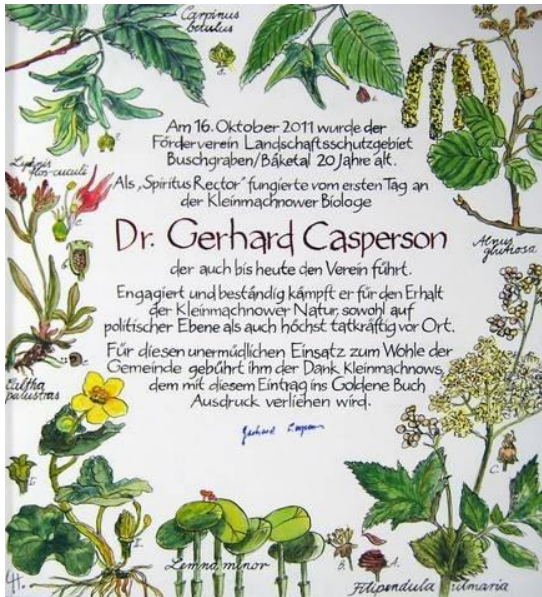 Carpinus
betulus
Am 16. Oktober 2011 wurde der
Förderverein Landschaftsschutzgebiet
Buschgraben/Bäketal 20 Jahre alt.
Lychnis
flos-cuculi
Als „Spiritus Rector" fungierte vom ersten Tag an
der Kleinmachnower Biologe
Dr. Gerhard Casperson
Alnus
glutinosa
der auch bis heute den Verein führt.
Engagiert und beständig kämpft er für den Erhalt
der Kleinmachnower Natur, sowohl auf
politischer Ebene als auch höchst tatkräftig vor Ort.
Für diesen unermüdlichen Einsatz zum Wohle der
Gemeinde gebührt ihm der Dank Kleinmachnows,
dem mit diesem Eintrag ins Goldene Buch
Ausdruck verliehen wird.
Caltha
palustras
Gerhard Casperson
C.
Lemna minor
B.
A.
Filipendula ulmaria